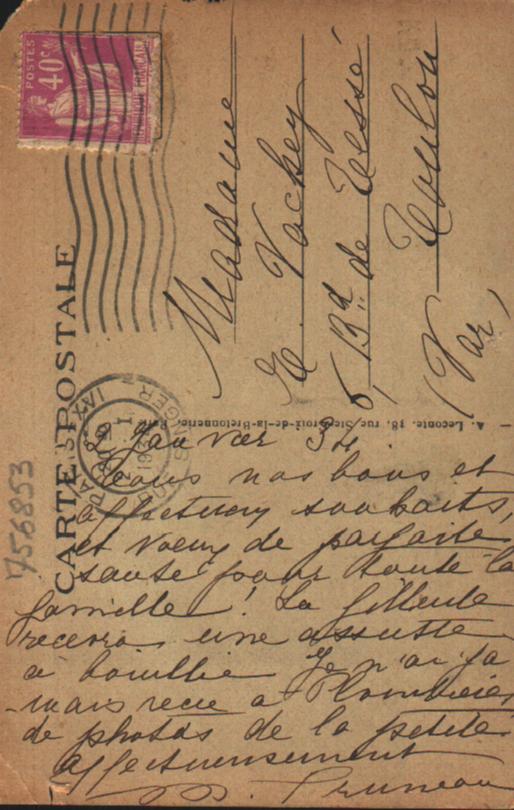 POSTES
40c
RÉPUBLIQUE FRANÇAISE
CARTE POSTALE
756853
Madame
E. Vachey
6, Bd. de Tessé
Toulon
(Var)
A. Leconte, 38, rue Ste-Croix-de-la-Bretonnerie, Paris
2 Janvier 34
Tous nos bons et
affectueux souhaits,
et voeux de parfaite
santé pour toute la
famille! La filleule
recevra une assiette
à bouillie Je n'ai ja
-mais reçu à Plombières
de photos de la petite
Affectueusement
Pruneau